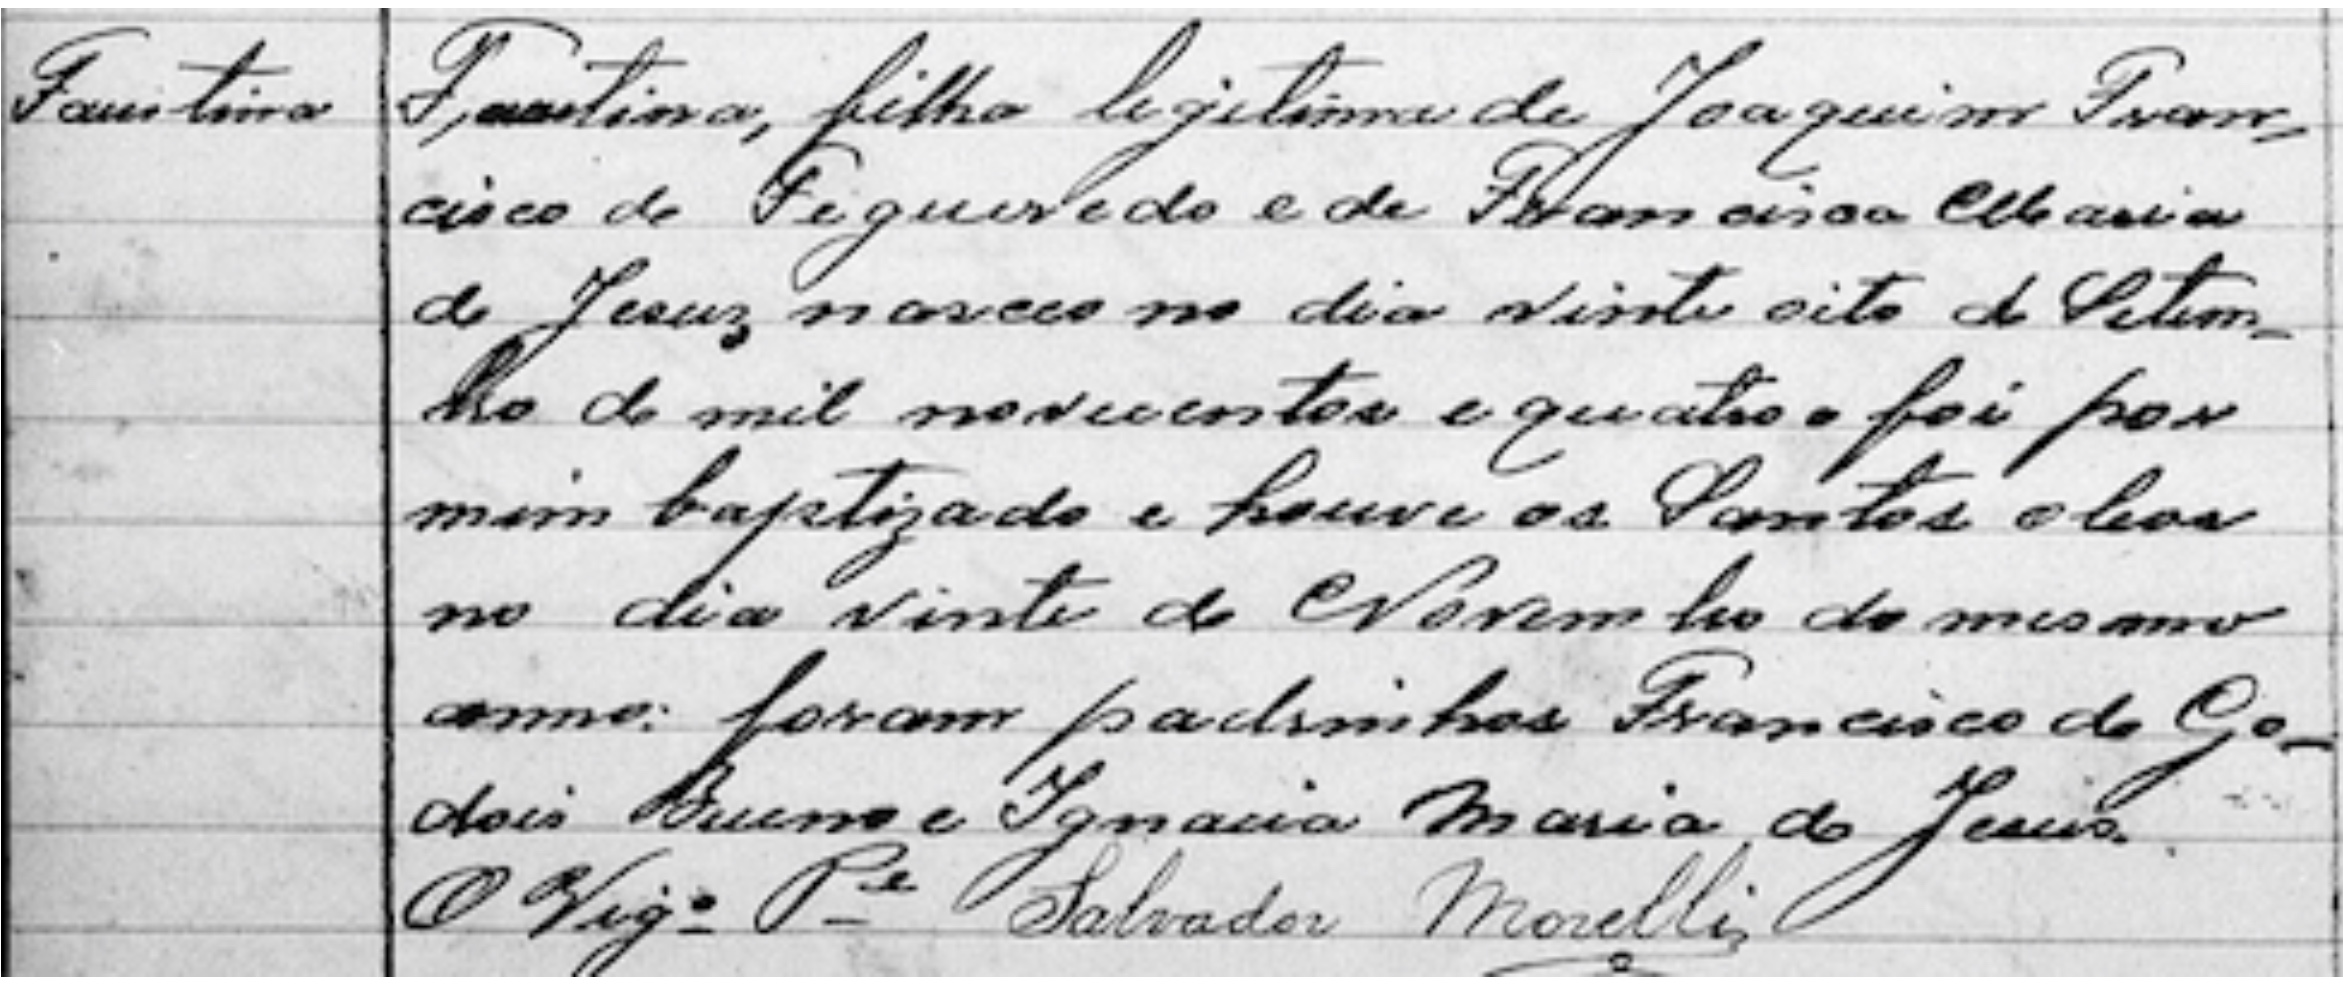 Faustina
Faustina, filha legitima de Joaquim Fran-
cisco de Fegueredo e de Francisca Maria
de Jesuz nasceo no dia vinte oito de Setem-
bro de mil novecentos e quatro e foi por
mim baptizado e houve os Santos oleos
no dia vinte de Novembro do mesmo
anno: foram padrinhos Francisco de Go-
dois Bueno e Ignacia Maria de Jesus.
O Vigº Pe Salvador Morelli